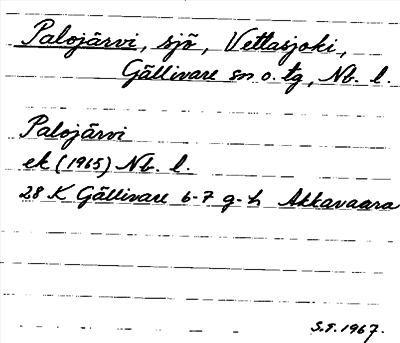 Palojärvi, sjö, Vettasjoki,
Gällivare sn o. tg, Nb. l.
Palojärvi
ek (1965) Nb. l.
28 K Gällivare 6-7 g-h Akkavaara
S.F. 1967.